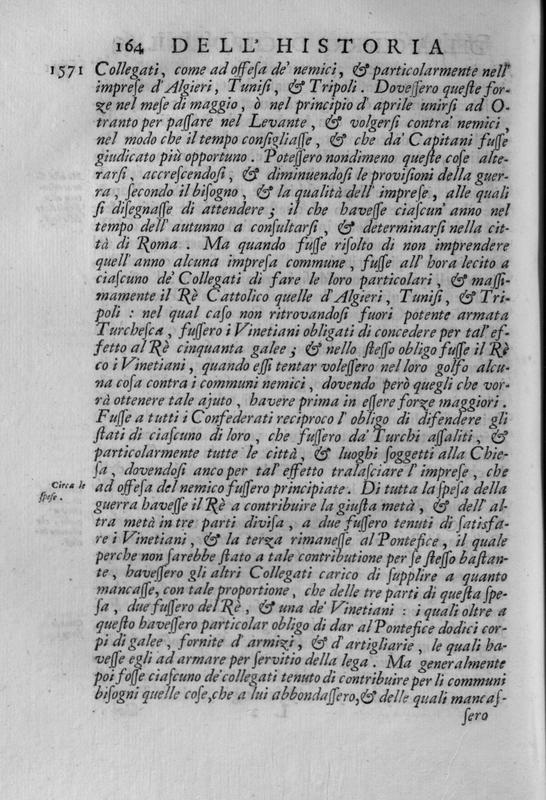 164 DELL'HISTORIA
1571 Collegati, come ad offeſa de' nemici, & particolarmente nell'
impreſe d'Algieri, Tuniſi, & Tripoli. Doveſſero queſte for-
ze nel meſe di maggio, ò nel principio d'aprile unirſi ad O-
tranto per paſſare nel Levante, & volgerſi contra' nemici,
nel modo che il tempo conſigliaſſe, & che da' Capitani fuſſe
giudicato più opportuno. Poteſſero nondimeno queſte coſe alte-
rarſi, accreſcendoſi, & diminuendoſi le proviſioni della guer-
ra, ſecondo il biſogno, & la qualità dell'impreſe, alle quali
ſi diſegnaſſe di attendere; il che haveſſe ciaſcun'anno nel
tempo dell'autunno a conſultarſi, & determinarſi nella cit-
tà di Roma. Ma quando fuſſe riſolto di non imprendere
quell'anno alcuna impreſa commune, fuſſe all'hora lecito a
ciaſcuno de' Collegati di fare le loro particolari, & maſſi-
mamente il Rè Cattolico quelle d'Algieri, Tuniſi, & Tri-
poli: nel qual caſo non ritrovandoſi fuori potente armata
Turcheſca, fuſſero i Vinetiani obligati di concedere per tal'ef-
fetto al Rè cinquanta galee; & nello ſteſſo obligo fuſſe il Rè
co i Vinetiani, quando eſſi tentar voleſſero nel loro golfo alcu-
na coſa contra i communi nemici, dovendo però quegli che vor-
rà ottenere tale ajuto, havere prima in eſſere forze maggiori.
Fuſſe a tutti i Confederati reciproco l'obligo di difendere gli
ſtati di ciaſcuno di loro, che fuſſero da' Turchi aſſaliti, &
particolarmente tutte le città, & luoghi ſoggetti alla Chie-
ſa, dovendoſi anco per tal'effetto tralaſciare l'impreſe, che
Circa le ſpeſe.
ad offeſa del nemico fuſſero principiate. Di tutta la ſpeſa della
guerra haveſſe il Rè a contribuire la giuſta metà, & dell'al-
tra metà in tre parti diviſa, a due fuſſero tenuti di ſatisfa-
re i Vinetiani, & la terza rimaneſſe al Pontefice, il quale
perche non ſarebbe ſtato a tale contributione per ſe ſteſſo baſtan-
te, haveſſero gli altri Collegati carico di ſupplire a quanto
mancaſſe, con tale proportione, che delle tre parti di queſta ſpe-
ſa, due fuſſero del Rè, & una de' Vinetiani: i quali oltre a
queſto haveſſero particolar obligo di dar al Pontefice dodici cor-
pi di galee, fornite d'armizi, & d'artigliarie, le quali ha-
veſſe egli ad armare per ſervitio della lega. Ma generalmente
poi foſſe ciaſcuno de' collegati tenuto di contribuire per li communi
biſogni quelle coſe, che a lui abbondaſſero, & delle quali mancaſ-
ſero